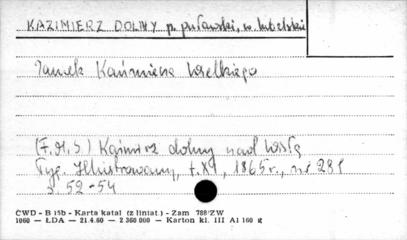 KAZIMIERZ DOLNY p. puławski, w. lubelskie
Zamek Kazimierza Wielkiego
(F.H.S) Kazimierz dolny nad Wisłą
Tyg. Illustrowany, t. XI, 1865 r., nr 281
s. 52-54
CWD - B 15b - Karta katal (z liniat.) - Zam 788/ZW
1060 — ŁDA — 21.4.60 — 2 360 000 — Karton kl. III A1 160 g